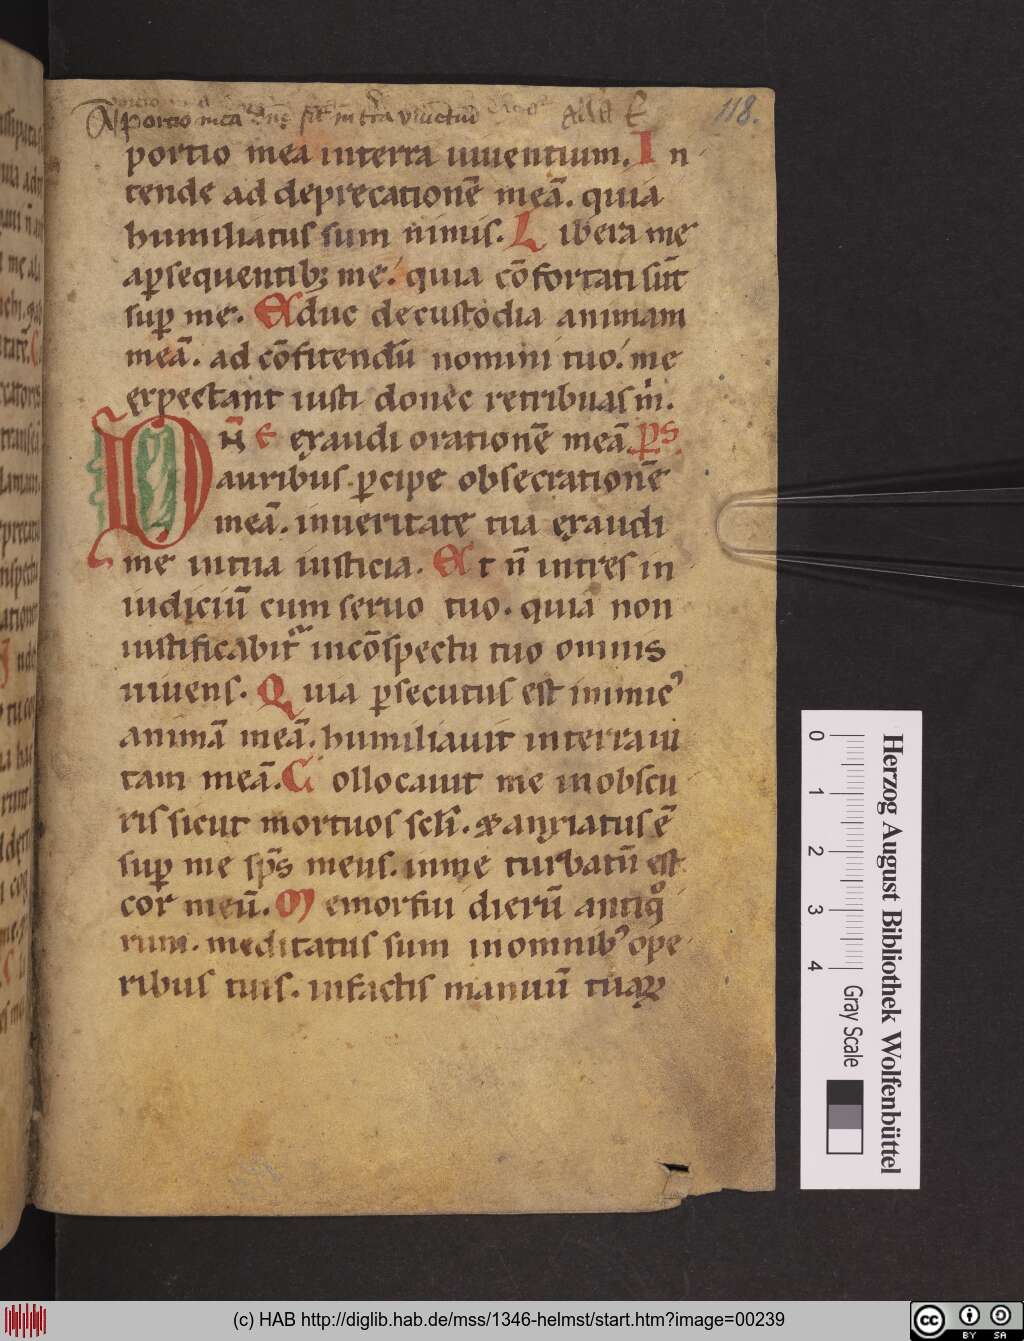 portio mea dn̄s sit in t̄ra viventiū
118.
portio mea interra uiuentium. In
tende ad deprecationē meā. quia
humiliatus sum nimis. Libera me
a ꝑsequentibꝫ me. quia cōfortati sūt
suꝑ me. Educ de custodia animam
meā. ad cōfitendū nomini tuo. me
expectant iusti donec retribuas m̍.
Dn̄e exaudi orationē meā. ps
auribus ꝑcipe obsecrationē
meā. in ueritate tua exaudi
me in tua iusticia. Et n̄ intres in
iudiciū cum seruo tuo. quia non
iustificabit᷑ in cōspectu tuo omnis
uiuens. Quia ꝑsecutus est inimicꝰ
animā meā. humiliauit in terra ui
tam meā. Collocauit me in obscu
ris sicut mortuos scl̄i. & anxiatus ē
suꝑ me sp̄s meus. in me turbatū est
cor meū. Memor fui dierū antiqͦ
rum. meditatus sum in omnibꝰ ope
ribus tuis. in factis manuū tuaꝝ
0 1 2 3 4 Gray Scale
Herzog August Bibliothek Wolfenbüttel
(c) HAB http://diglib.hab.de/mss/1346-helmst/start.htm?image=00239
cc BY SA